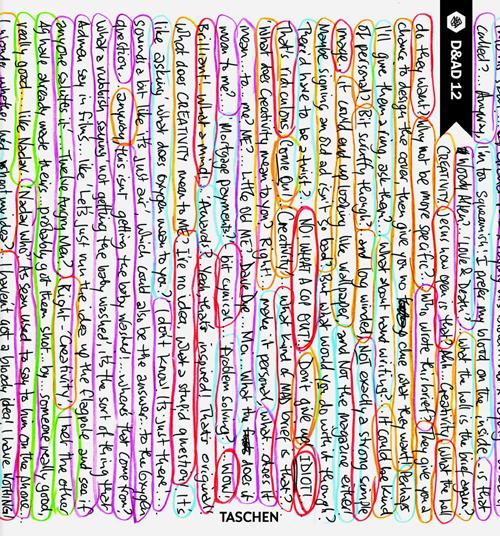 D&AD 12
called?.. Anyway, I'm to squeamish. I prefer my blood on the inside... is that
Woody Allen? 'Love & Death'.. What the hell is the brief again?
CREATIVITY. how open is that? Mm.. Creativity. What the hell
do they want? Why not be more specific? Who wrote this brief? They give you a
chance to design the cover then give you no clue what they want. Perhaps
I'll give them a ring, ask them? What about hand writing? It could be kind
of personal? Bit scruffy though... and long winded? Not exactly a strong simple
image. It could end up looking like wallpaper and not the magazine either!
Maybe signing an old ad isn't so bad? But what could you do with it though?
There'd have to be a twist? NO WHAT A COP OUT! Don't give up IDIOT
That's ridiculous! Come on! Creativity? What kind of brief is that?
'What does Creativity mean to you?' Right!... make it personal, what does it
mean to.. me? ME?... Little old ME? Dave Dye... Mm.. What the does it
mean to me?... Mortgage payments? (bit cynical) Problem solving? WOW!
Brilliant! What a mind! Yeah that's inspired! That's original!
What does CREATIVITY mean to me? I've no idea. What a stupid question. It's
like asking 'what does oxygen mean to you?' I don't know it's just there.
sounds a bit like 'It's just air', which could also be the answer... to the oxygen
question. anyway this isn't getting the baby washed!... whered that come from?
What a rubbish saying 'not getting the baby washed'. It's the sort of thing that
Admen say in films, like 'Let's just run the idea up the flagpole and see if
anyone salutes it'... Twelve Angry Men? Right - Creativity? I bet the other
have already made theirs... probably got them shot... by someone really good,
really good... like Nadav used to say to him on the phone...
I wonder whether I haven't got a bloody idea! I have NOTHING
TASCHEN